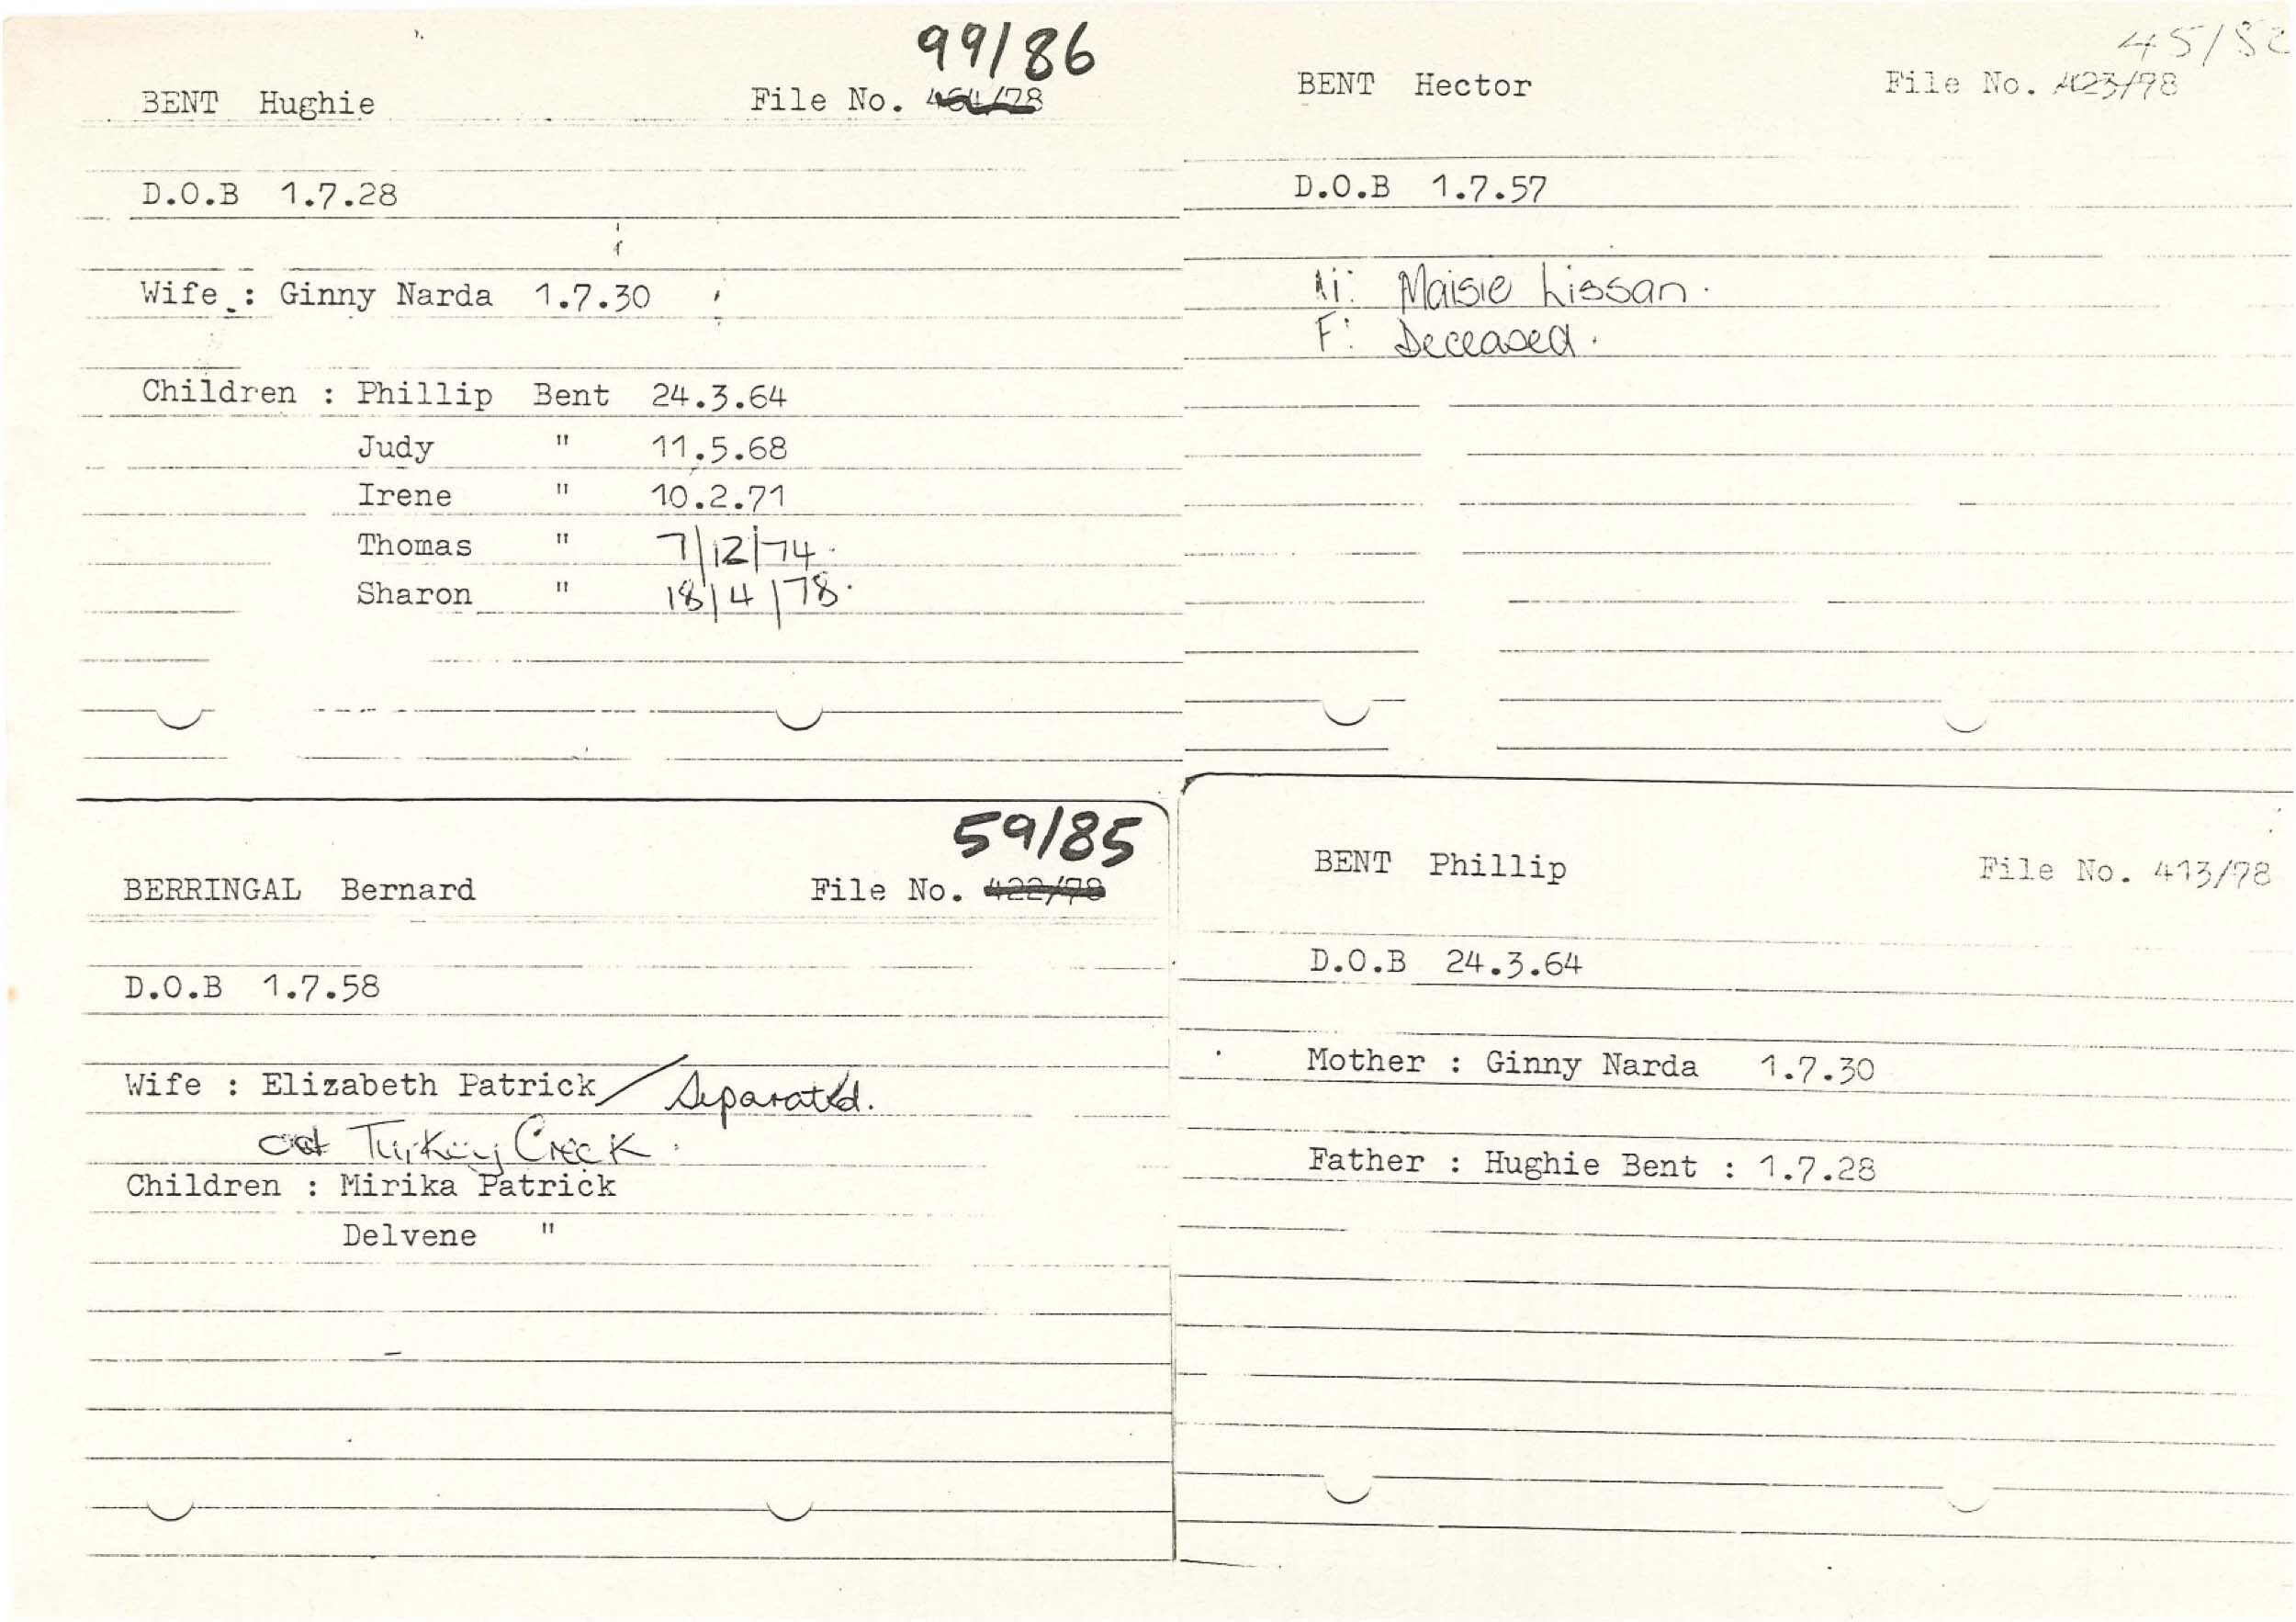 99/86
BENT Hughie File No. 464/78
D.O.B 1.7.28
Wife : Ginny Narda 1.7.30
Children : Phillip Bent 24.3.64
Judy " 11.5.68
Irene " 10.2.71
Thomas " 7/12/74.
Sharon " 18/4/78.
BENT Hector File No. 423/78
D.O.B 1.7.57
M: Maisie Lissan.
F: Deceased.
59/85
BERRINGAL Bernard File No. 422/78
D.O.B 1.7.58
Wife : Elizabeth Patrick / Separated.
at Turkey Creek.
Children : Mirika Patrick
Delvene "
BENT Phillip File No. 413/78
D.O.B 24.3.64
Mother : Ginny Narda 1.7.30
Father : Hughie Bent : 1.7.28